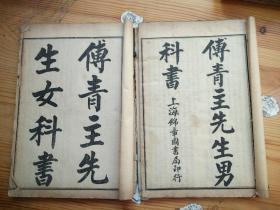 傅青主先生男
科書
上海錦章圖書局印行
傅青主先
生女科書